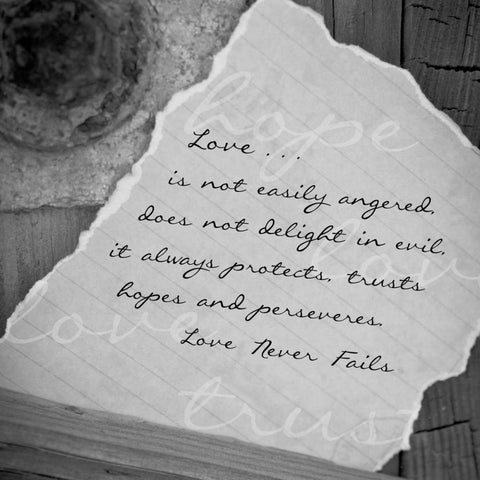 hope
Love . . .
is not easily angered,
does not delight in evil,
lov
it always protects, trusts
hopes and perseveres.
love
Love Never Fails
trust